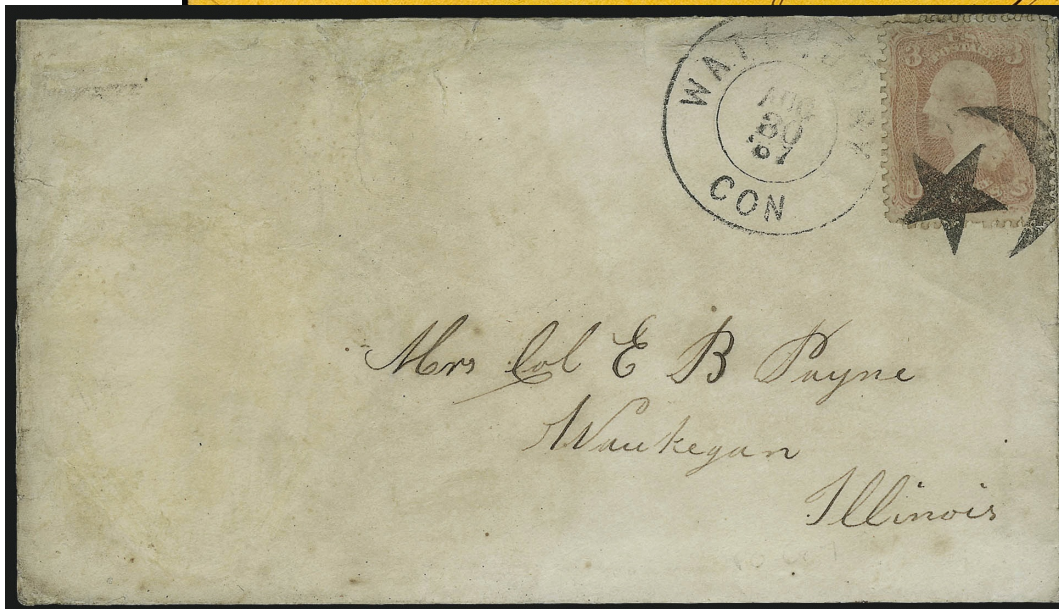 CON
AUG
30
3 3
Mrs Col E B Payne
Waukegan
Illinois